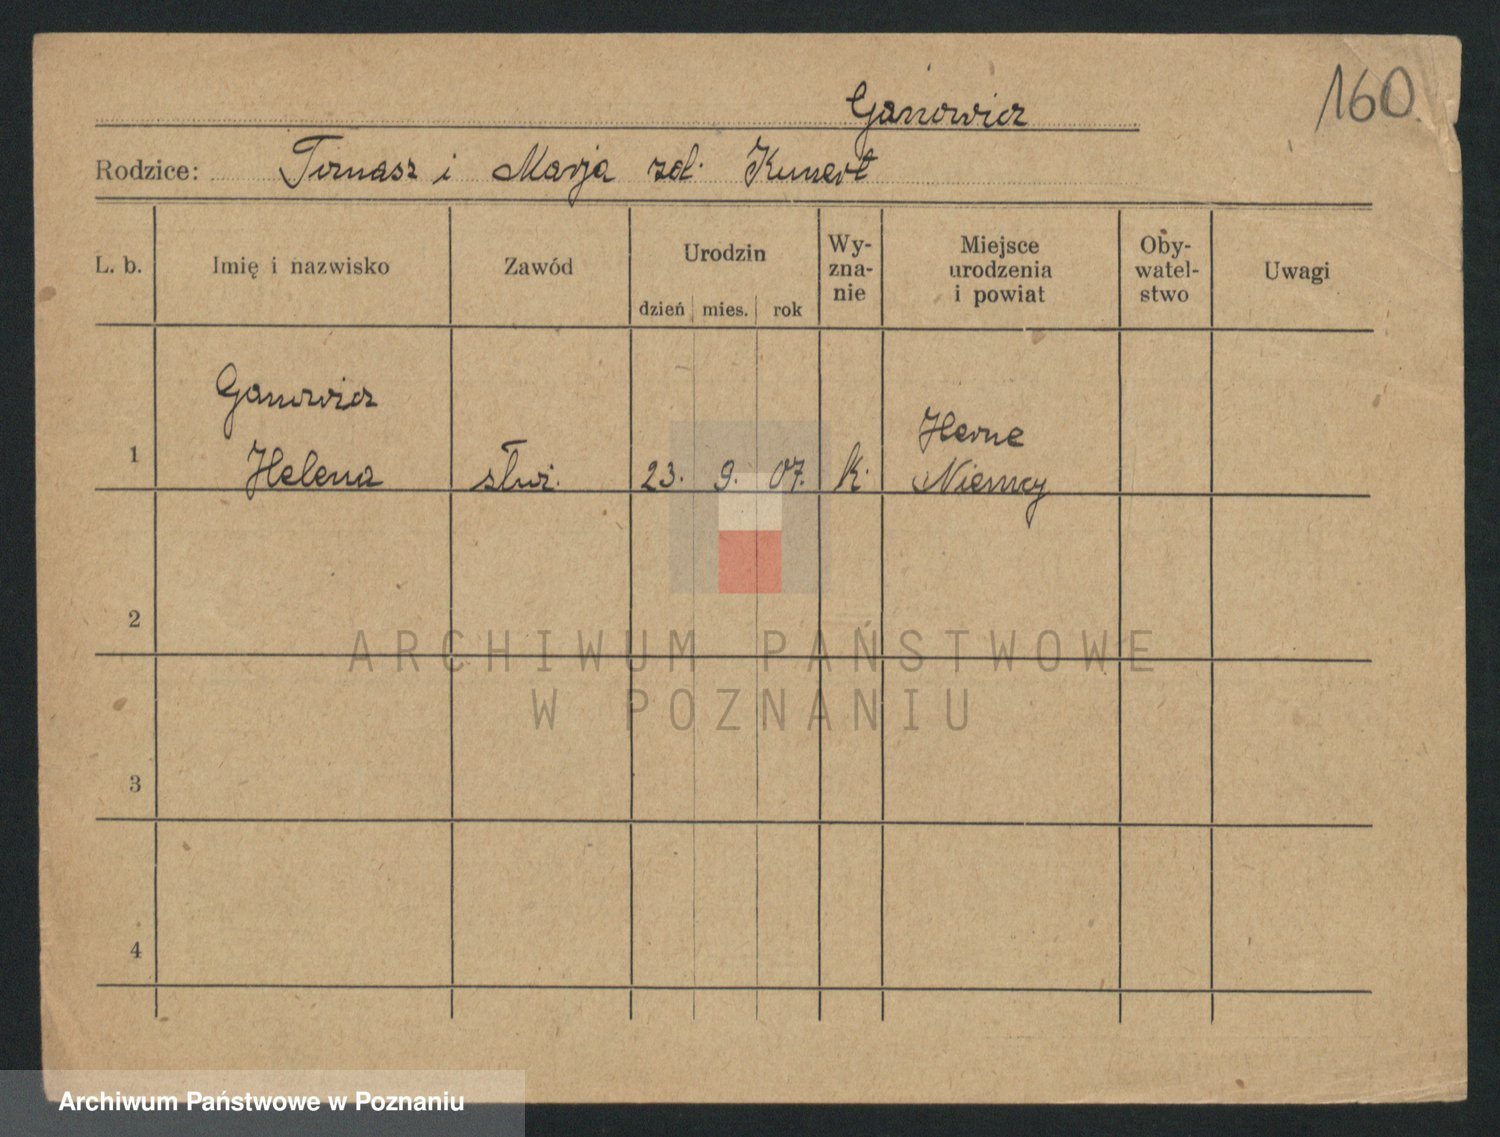 160.
Ganowicz
Rodzice: Tomasz i Marja zd. Kunert
L. b. Imię i nazwisko Zawód Urodzin dzień mies. rok Wy-zna-nie Miejsce urodzenia i powiat Oby-watel-stwo Uwagi
Ganowicz Herne
1 Helena służ. 23. 9. 07. k. Niemcy
2
ARCHIWUM PAŃSTWOWE
W POZNANIU
3
4
Archiwum Państwowe w Poznaniu